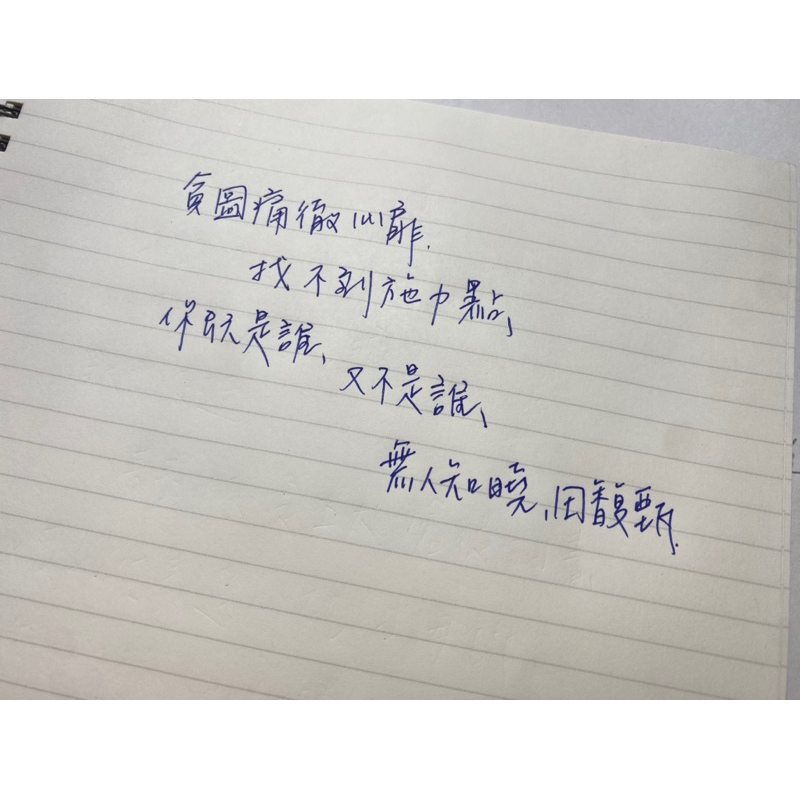 貪圖痛徹心扉.
找不到施力點、
你既是誰、
又不是誰、
無人知曉、田馥甄.